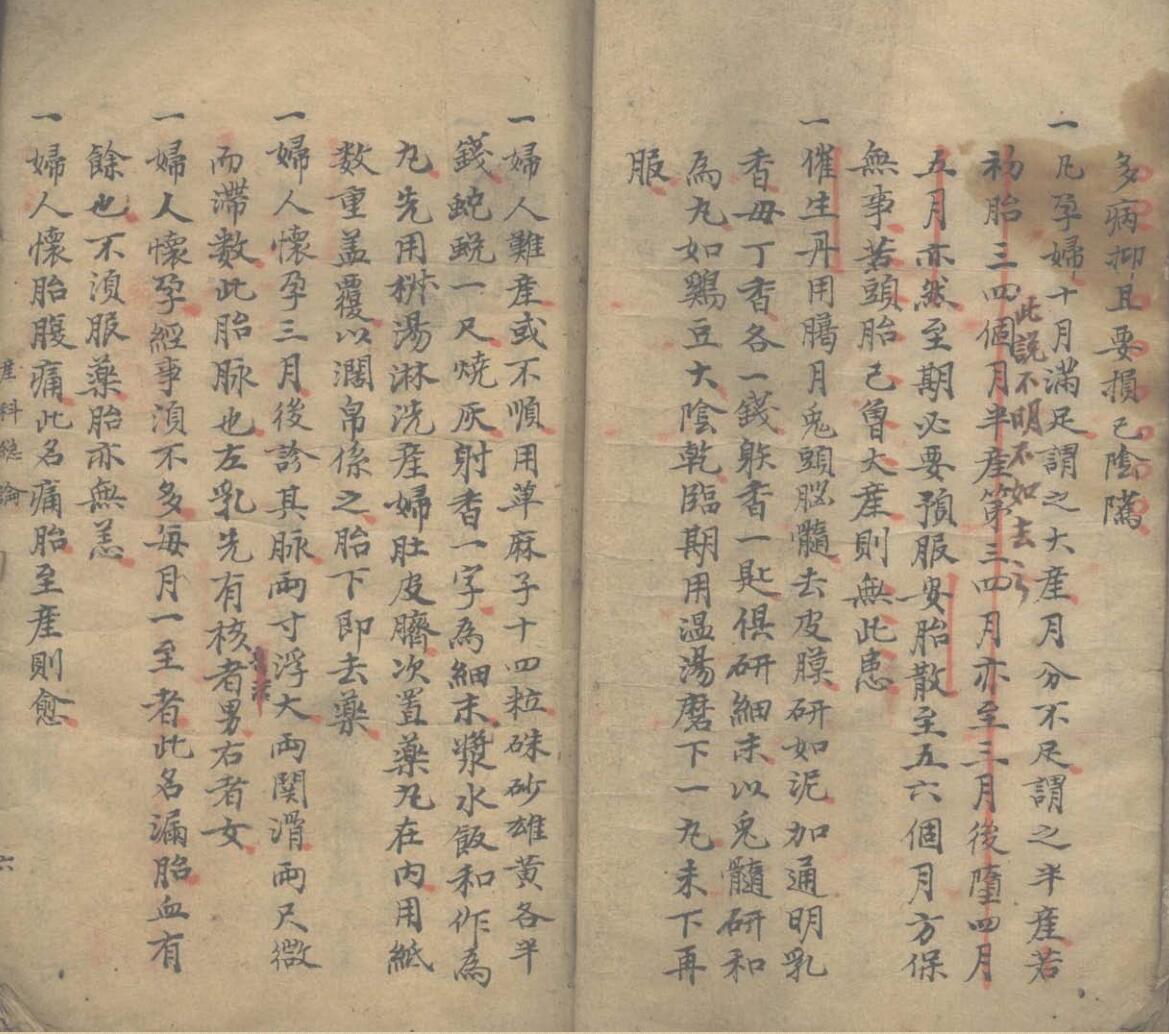 多病抑且要損己陰隲
一凡孕婦十月滿足謂之大產月分不足謂之半產若
初胎三四個月半產第三四月亦至三月後墮四月
此説不明不如去
五月亦然至期必要預服安胎散至五六個月方保
無事若頭胎已曾大產則無此患
一催生丹用臈月兎頭脳髓去皮膜研如泥加通明乳
香毋丁香各一錢麝香一匙俱研細末以兎髓研和
為丸如鷄豆大陰乾臨期用温湯磨下一丸未下再
服
一婦人難產或不順用草麻子十四粒硃砂雄黃各半
錢蛇蛻一尺燒灰射香一字為細末漿水飯和作為
丸先用椒湯淋洗產婦肚皮臍次置藥丸在內用紙
数重盖覆以濶帛係之胎下即去藥
一婦人懷孕三月後診其脉兩寸浮大兩関滑兩尺微
而滯數此胎脉也左乳先有核者男右者女
一婦人懷孕經事湏不多每月一至者此名漏胎血有
餘也不湏服藥胎亦無恙
一婦人懷胎腹痛此名痛胎至產則愈
產科總論
六